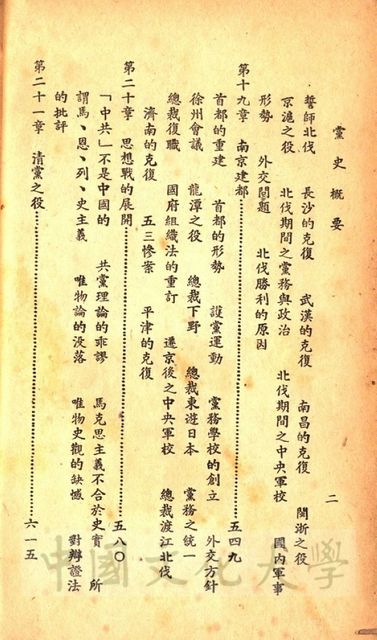 黨史概要
二
誓師北伐 長沙的克復 武漢的克復 南昌的克復 閩浙之役
京滬之役 北伐期間之黨務與政治 北伐期間之中央軍校 國內軍事
形勢 外交問題 北伐勝利的原因
第十九章 南京建都…………五四九
首都的重建 首都的形勢 護黨運動 黨務學校的創立 外交方針
徐州會議 龍潭之役 總裁下野 總裁東遊日本 黨務之統一
總裁復職 國府組織法的重訂 遷京後之中央軍校 總裁渡江北伐
濟南的克復 五三慘案 平津的克復
第二十章 思想戰的展開…………五八〇
「中共」不是中國的 共黨理論的乖謬 馬克思主義不合於史實 所
謂馬、恩、列、史主義 唯物論的没落 唯物史觀的缺憾 對辯證法
的批評
第二十一章 清黨之役…………六一五
中國文化大學